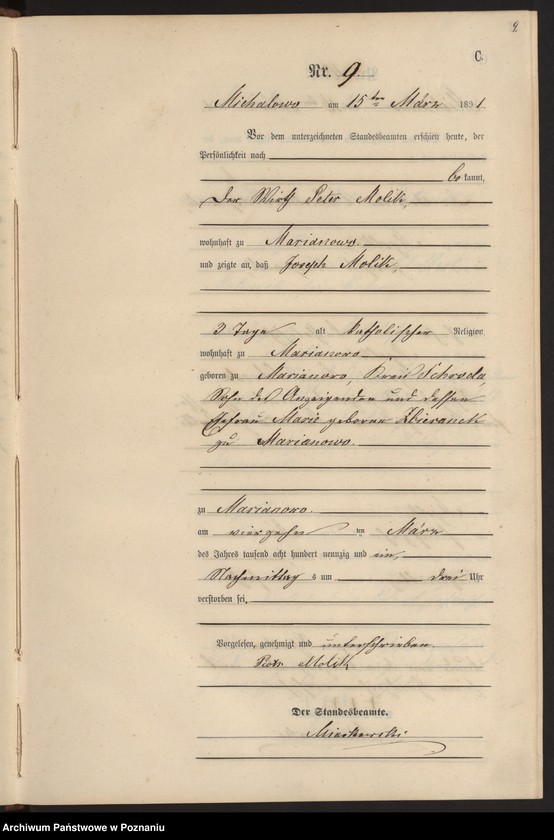 9
C.
Nr. 9.
Michalowo am 15ten März 1891.
Vor dem unterzeichneten Standesbeamten erschien heute, der
Persönlichkeit nach
be kannt,
der Wirth Peter Molik,
wohnhaft zu Marianowo.
und zeigte an, daß Joseph Molik,
2 Tage alt katholischer Religion
wohnhaft zu Marianowo
geboren zu Marianowo, Kreis Schroda
Sohn des Anzeigenden und dessen
Ehefrau Marie geboren
zu Marianowo.
zu Marianowo.
am vierzehn ten März
des Jahres tausend acht hundert neunzig und ein,
Nachmittag s um drei Uhr
verstorben sei.
Vorgelesen, genehmigt und unterschrieben.
Piotr Molik
Der Standesbeamte.
Archiwum Państwowe w Poznaniu